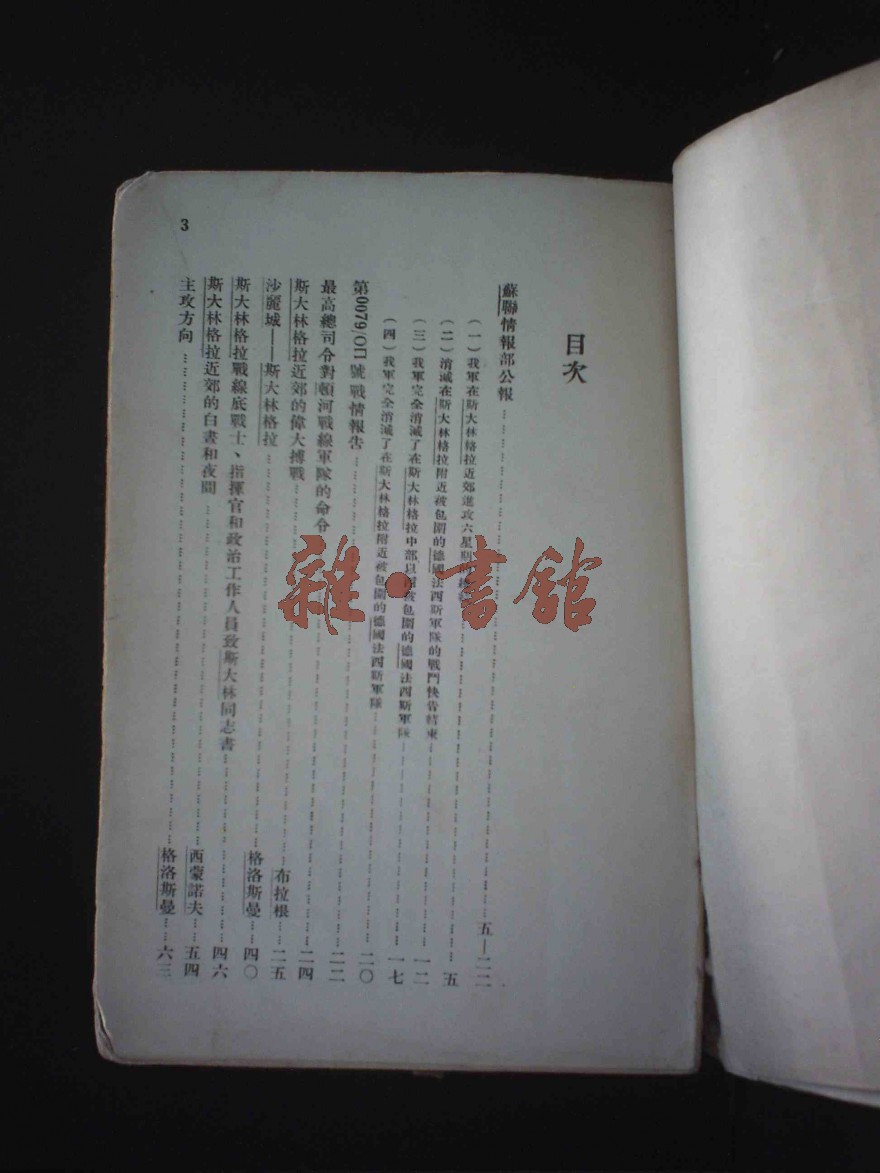 目次
蘇聯情報部公報……五—二二
(一)我軍在斯大林格拉近郊進攻六星期……五
(二)消滅在斯大林格拉附近被包圍的德國法西斯軍隊的戰鬥快告結束……一二
(三)我軍完全消滅了在斯大林格拉中部以被包圍的德國法西斯軍隊……一七
(四)我軍完全消滅了在斯大林格拉附近被包圍的德國法西斯軍隊……二〇
第0079/ОП號戰情報告……二二
最高總司令對頓河戰線軍隊的命令……二四
斯大林格拉近郊的偉大搏戰……布拉根……二五
沙麗城——斯大林格拉……格洛斯曼……四〇
斯大林格拉戰線底戰士、指揮官和政治工作人員致斯大林同志書……四六
斯大林格拉近郊的白晝和夜間……西蒙諾夫……五四
主攻方向……格洛斯曼……六三
3
雜·書館